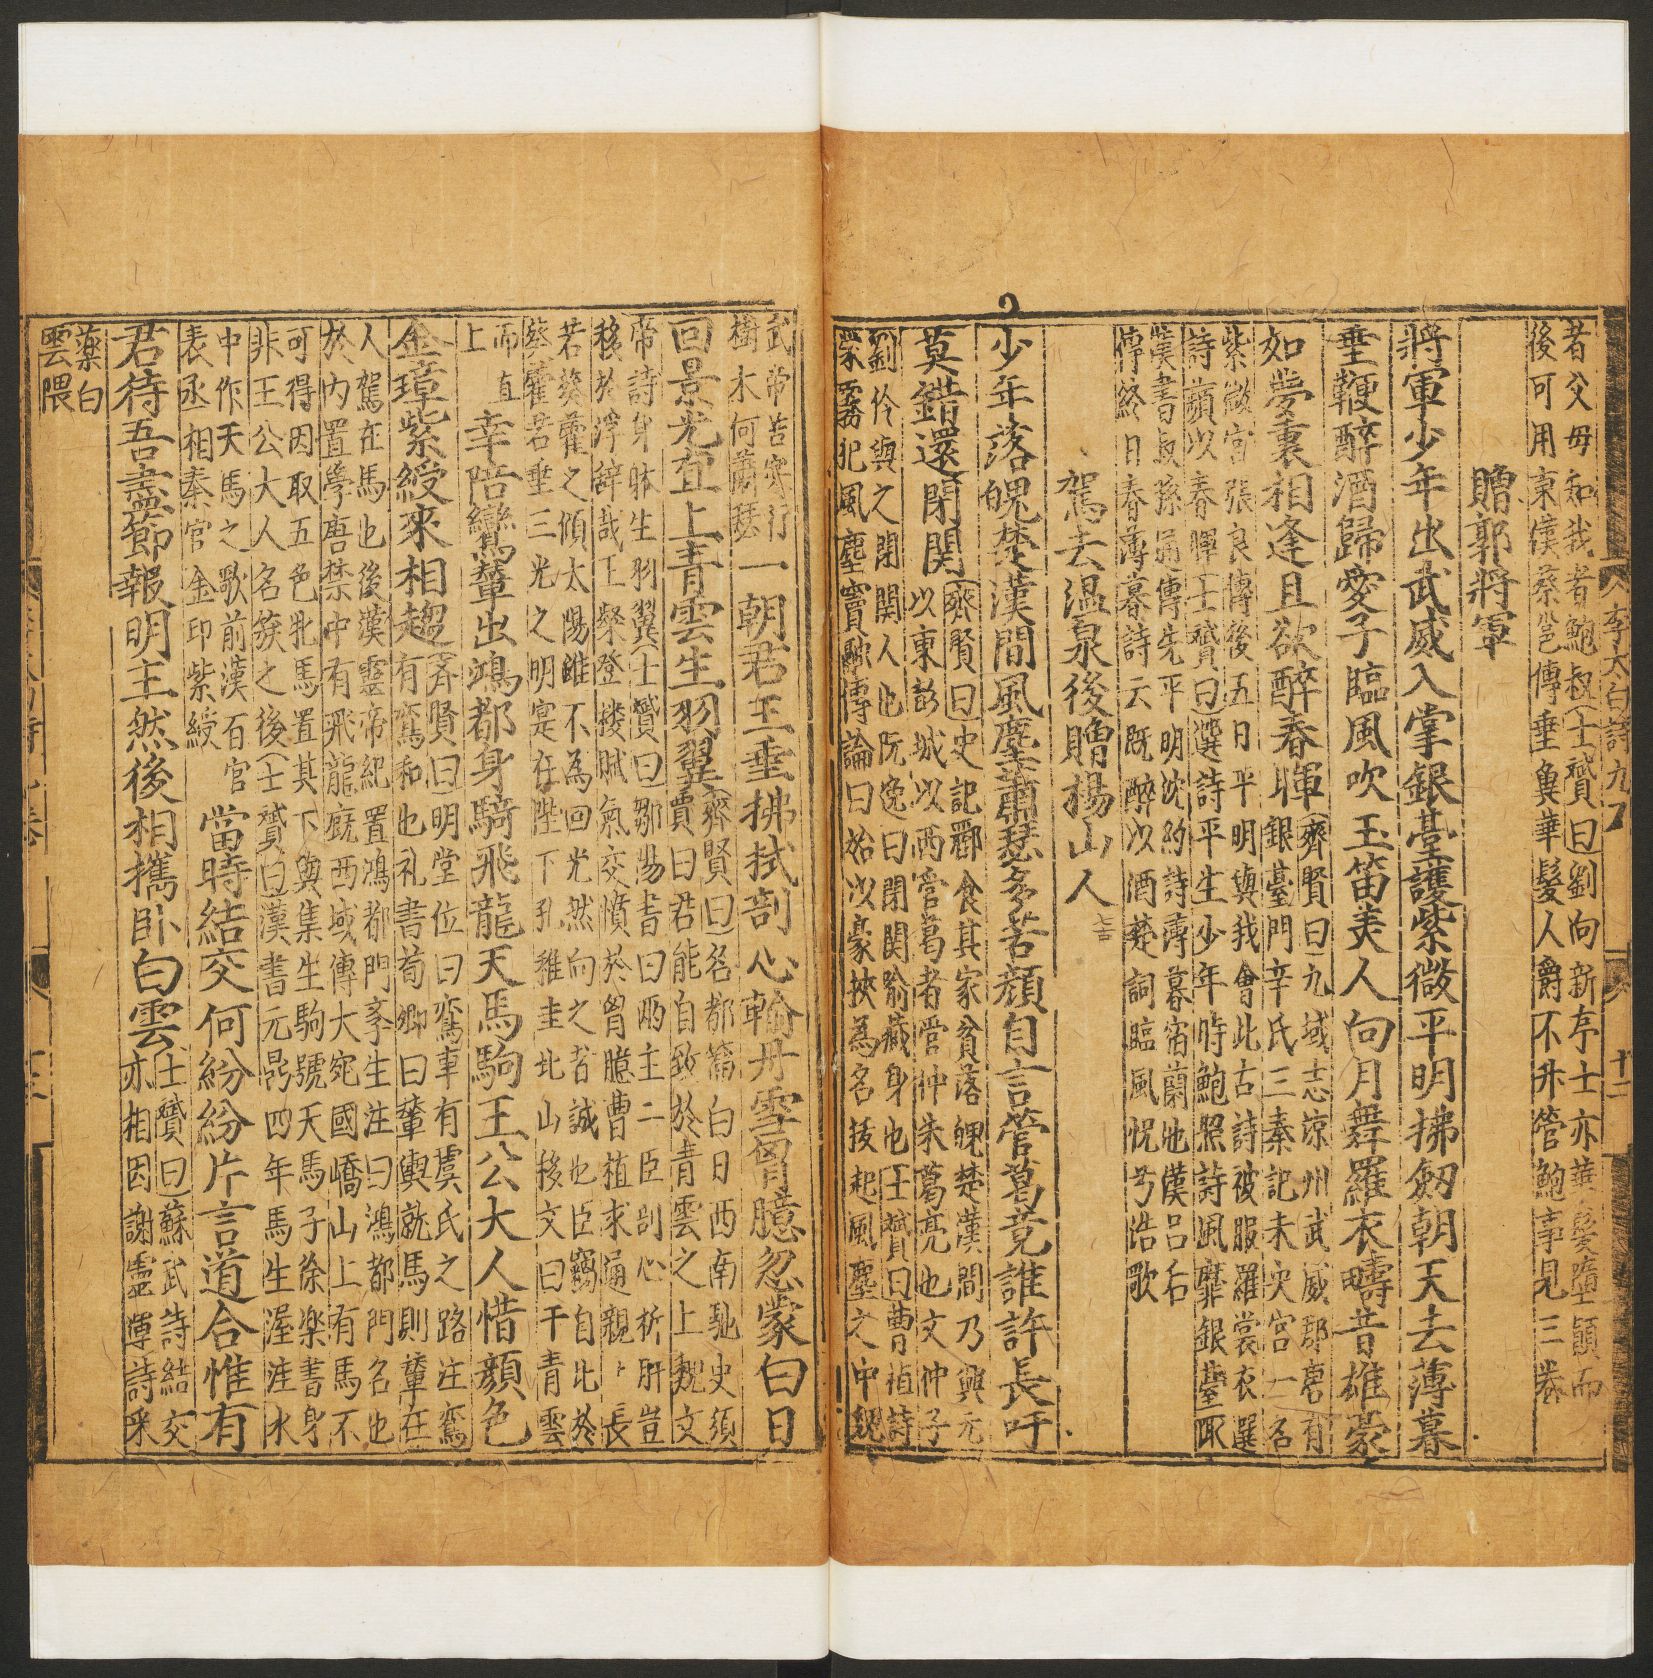 李太白詩九
十二
者父母知我者鮑叔士贇曰劉向新序士亦華髮墮顛而
後可用東漢蔡邕傳垂髮華髮人爵不升管鮑事見三卷
贈郭將軍
將軍少年出武威入掌銀臺護紫微平明拂劒朝天去薄暮
垂鞭醉酒歸愛子臨風吹玉笛美人向月舞羅衣疇昔雄豪
如夢裏相逢且欲醉春暉
齊賢曰九域志涼州武威郡唐有
銀臺門辛氏三秦記未央宮一名
紫微宮張良傳後五日平明與我會此古詩被服羅裳衣選
詩顏以春暉士贇曰選詩平生少年時鮑照詩風靡銀臺陬
漢書叔孫通傳先平明沈約詩薄暮宿蘭池漢呂后
傳終日春薄暮詩云既醉以酒楚詞臨風怳兮浩歌
駕去温泉後贈楊山人
少年落魄楚漢間風塵蕭瑟多苦顏自言管葛竟誰許長吁
莫錯還閉關
齊賢曰史記酈食其家貧落魄楚漢間乃興元
以東彭城以西管葛者管仲朱葛亮也文仲子
劉伶與之閉關人也阮逸曰閉關喻藏身也士贇曰曹植詩
蒙霧犯風塵竇融傳論曰始以豪俠為名拔起風塵之中魏
武帝苦寒行
樹木何蕭瑟
一朝君王垂拂拭剖心輸丹雪胷臆忽蒙白日
回景光直上青雲生羽翼
齊賢曰名都篇白日西南馳史須
賈曰君能自致於青雲之上魏文
帝詩身體生羽翼士贇曰鄒陽書曰兩主二臣剖心析肝豈
移於浮辭哉王粲登樓賦氣交憤於胷臆曹植求通親親長
若葵藿之傾太陽雖不為回光然向之者誠也臣竊自比於
葵藿若垂三光之明寔在陛下孔稚圭北山移文曰干青雲
而直
上
幸陪鸞輦出鴻都身騎飛龍天馬駒王公大人惜顏色
金璋紫綬來相趨
齊賢曰明堂位曰鸞車有虞氏之路注鸞
有鸞和也礼書荀卿曰輦輿就馬則輦在
人駕在馬也後漢靈帝紀置鴻都門斈生注曰鴻都門名也
於内置學唐禁中有飛龍厩西域傳大宛國嶠山上有馬不
可得因取五色牝馬置其下與集生駒號天馬子徐楽書身
非王公大人名族之後士贇曰漢書元鼎四年馬生渥洼水
中作天馬之歌前漢石官
表丞相秦官金印紫綬
當時結交何紛紛片言道合惟有
君待吾盡節報明主然後相攜卧白雲
士贇曰蘇武詩結交
亦相因謝靈運詩采
藥白
雲隈